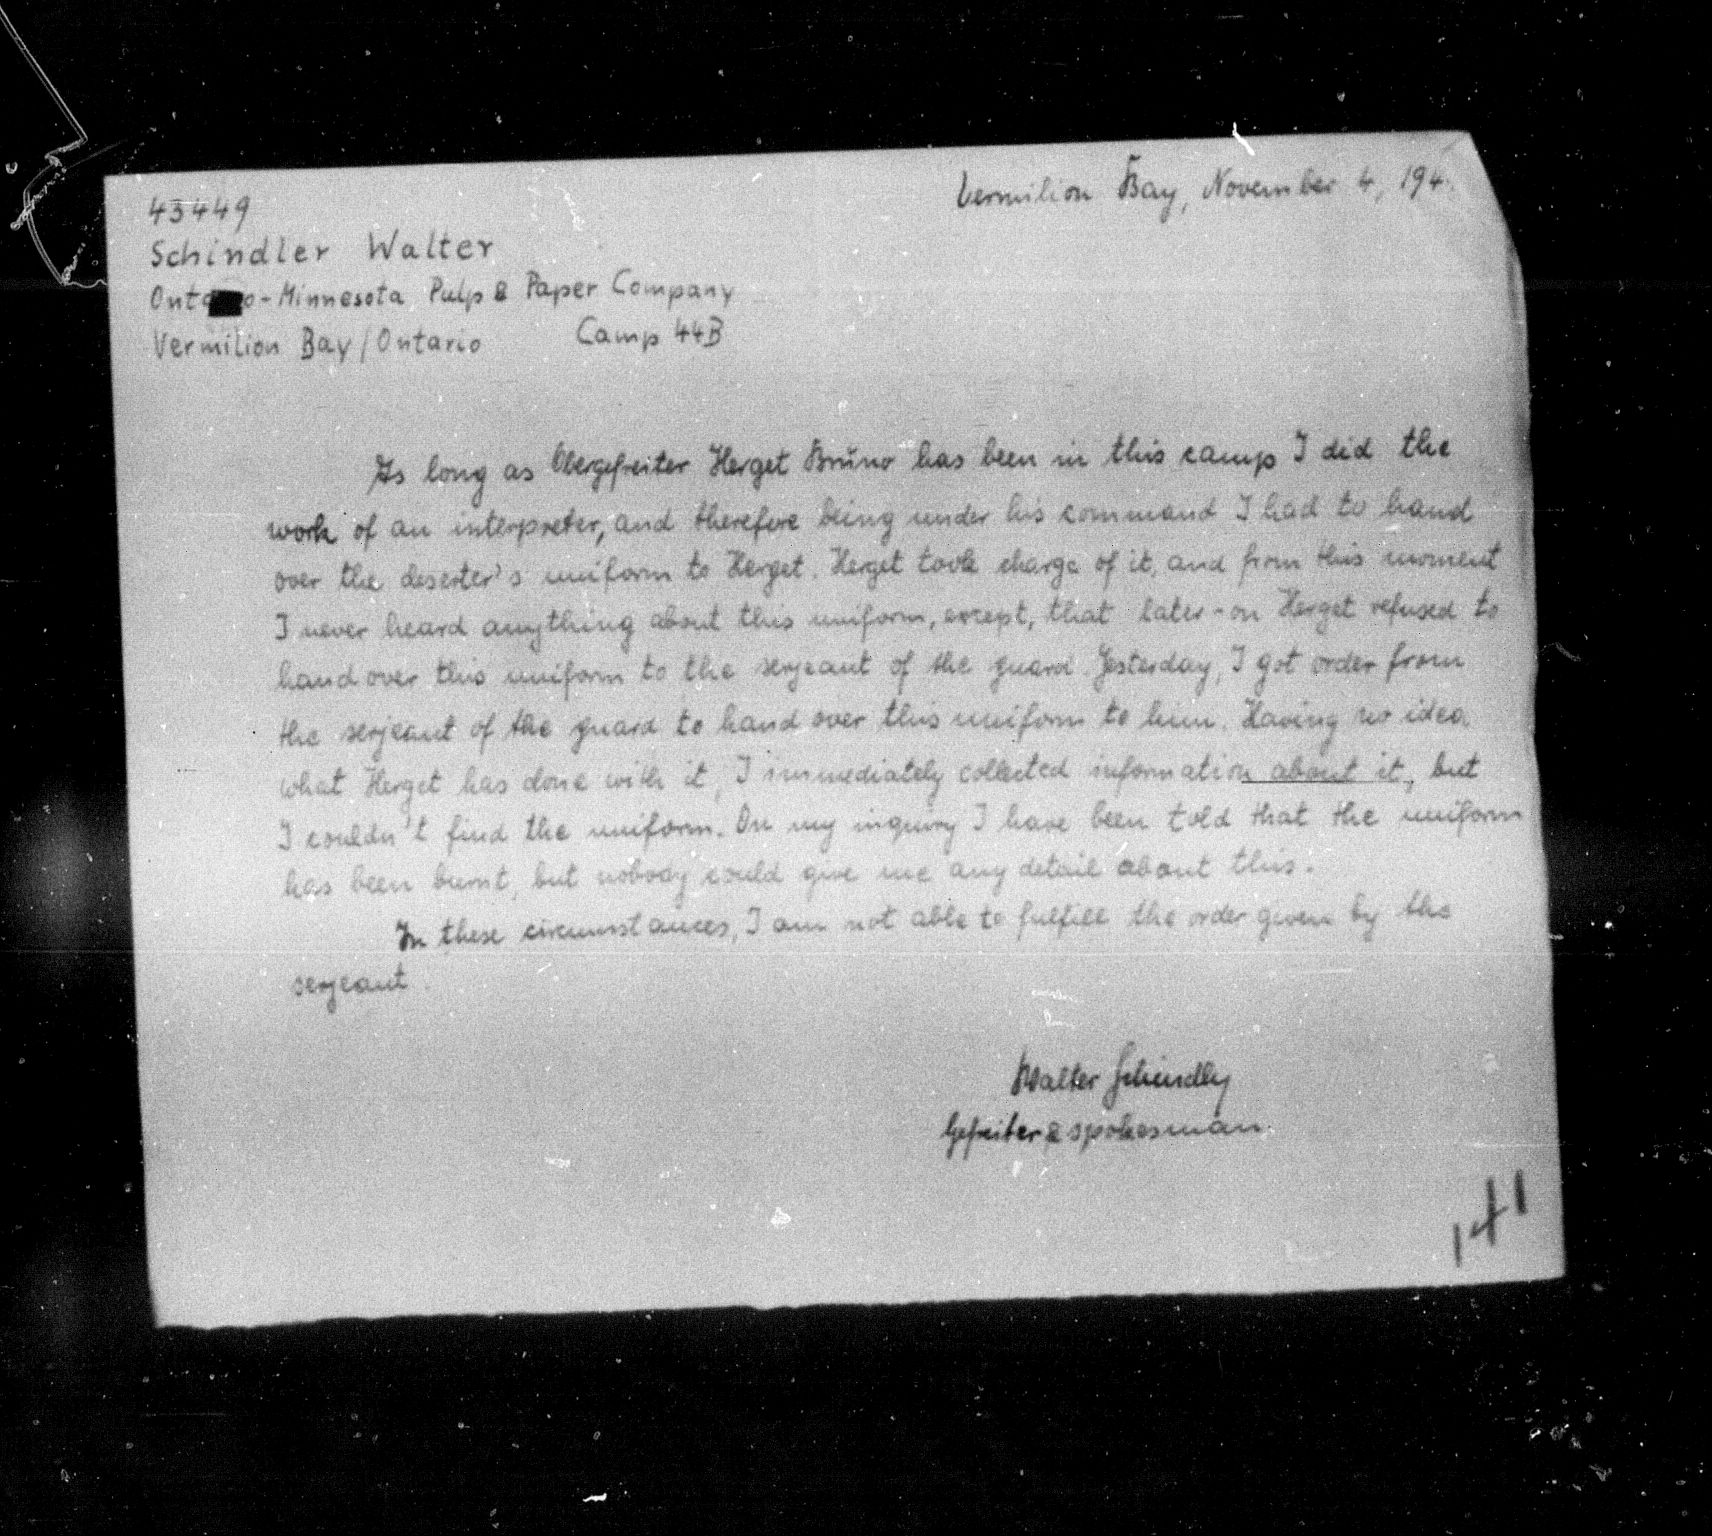 Vermilion Bay, November 4, 194
43449
Schindler Walter
Ontario-Minnesota Pulp & Paper Company
Vermilion Bay/Ontario Camp 44B
As long as Obergefreiter Herget Brūno has been in this camp I did the
work of an interpreter, and therefore being under his command I had to hand
over the deserter's uniform to Herget. Herget took charge of it, and from this moment
I never heard anything about this uniform, except, that later-on Herget refused to
hand over this uniform to the serjeant of the guard. Yesterday, I got order from
the serjeant of the guard to hand over this uniform to him. Having no idea
what Herget has done with it, I immediately collected information about it, but
I couldn't find the uniform. On my inquiry I have been told that the uniform
has been burnt, but nobody could give me any detail about this.
In these circumstances, I am not able to fulfill the order given by the
serjeant.
Walter Schindler
Gefreiter & spokesman.
141